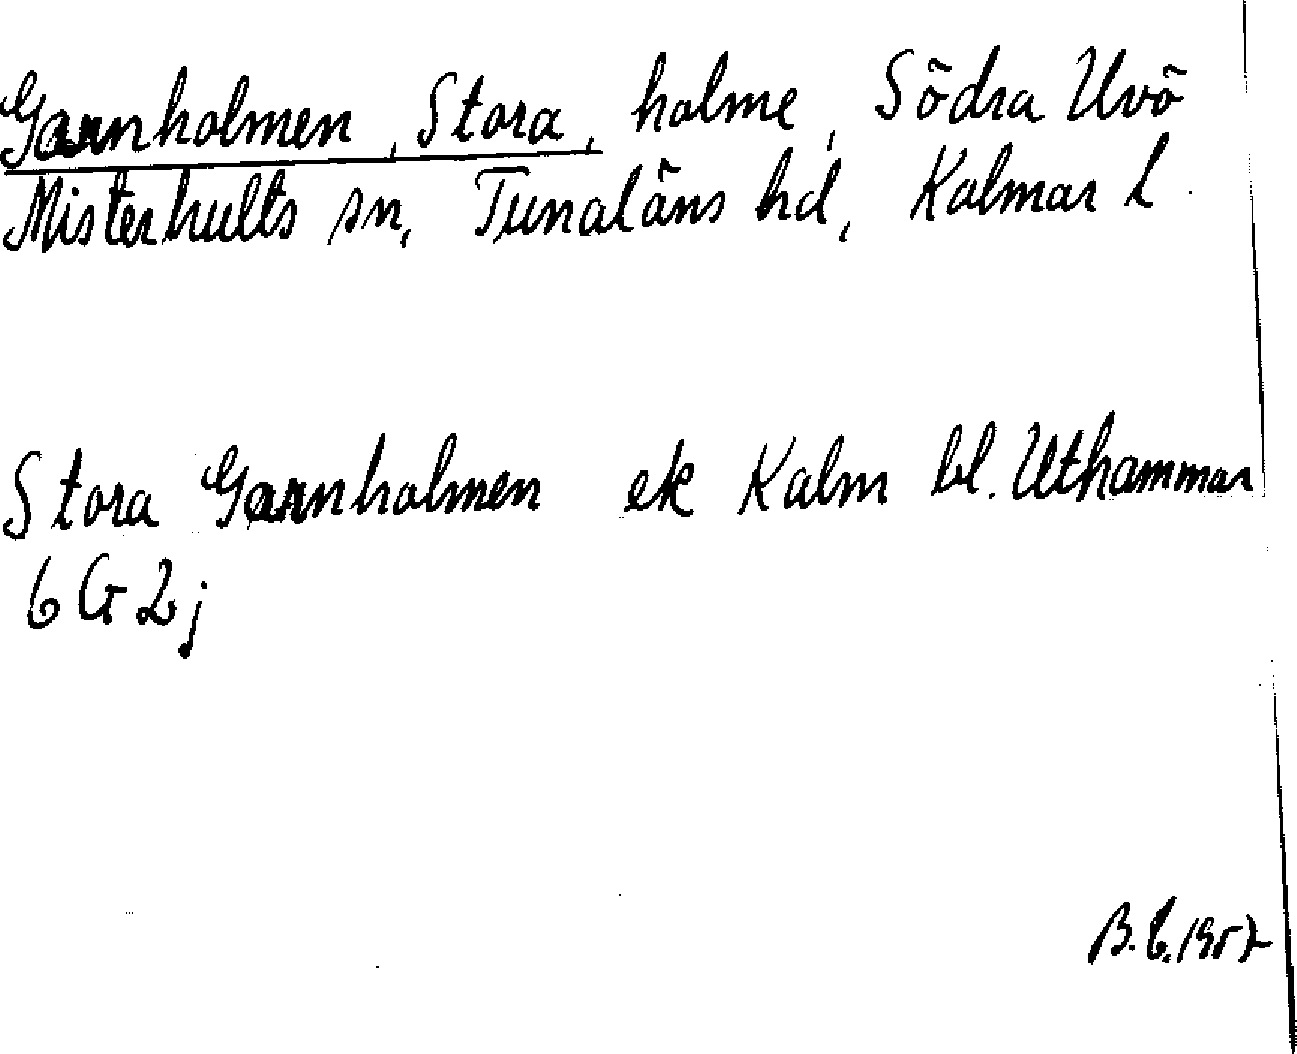 Garnholmen, Stora, holme, Södra Uvö
Misterhults sn, Tunaläns hd, Kalmar l.
Stora Garnholmen ek Kalm bl. Uthammar
6 G 2 j
B.E. 1957